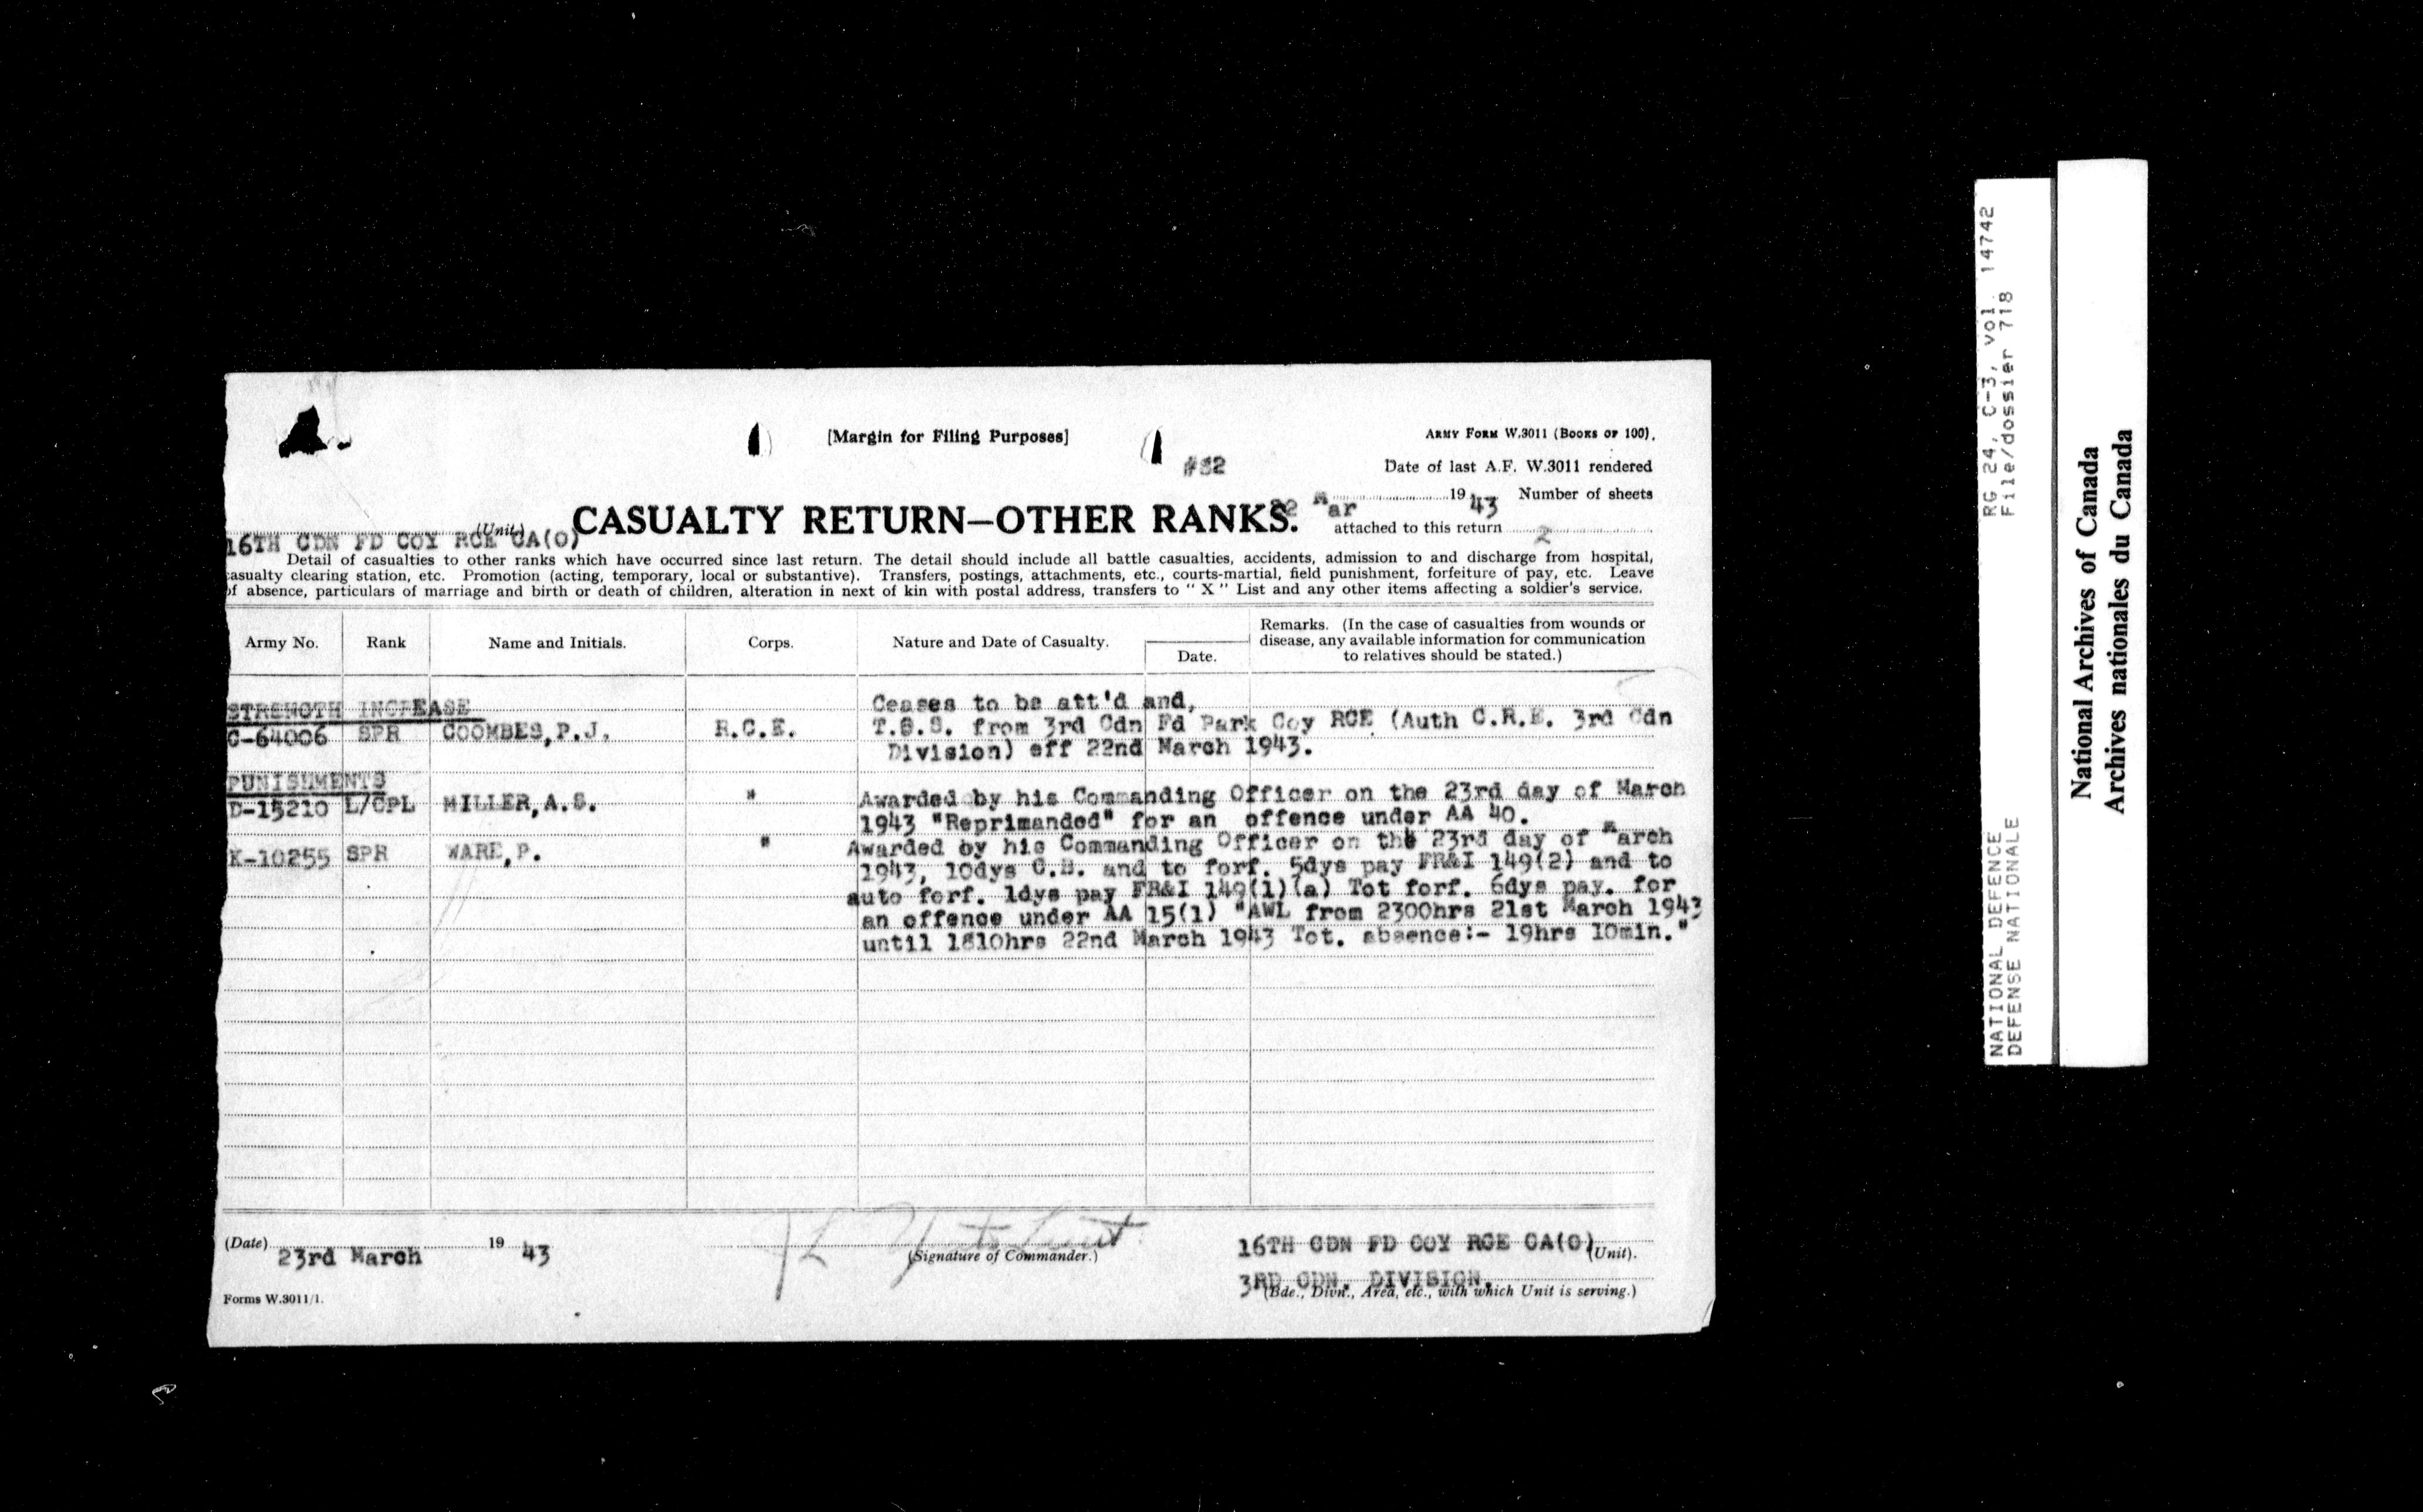 [Margin for Filing Purposes]
ARMY FORM W.3011 (BOOKS OF 100).
#32
Date of last A.F. W.3011 rendered
22 Mar 19 43 Number of sheets
attached to this return 2
CASUALTY RETURN—OTHER RANKS.
16TH CDN FD COY RCE CA(O)
(Unit)
Detail of casualties to other ranks which have occurred since last return. The detail should include all battle casualties, accidents, admission to and discharge from hospital,
casualty clearing station, etc. Promotion (acting, temporary, local or substantive). Transfers, postings, attachments, etc., courts-martial, field punishment, forfeiture of pay, etc. Leave
of absence, particulars of marriage and birth or death of children, alteration in next of kin with postal address, transfers to " X " List and any other items affecting a soldier's service.
Army No. Rank Name and Initials. Corps. Nature and Date of Casualty. Date. Remarks. (In the case of casualties from wounds or
disease, any available information for communication
to relatives should be stated.)
STRENGTH INCREASE Ceases to be att'd and,
C-64006 SPR COOMBES,P.J. R.C.E. T.O.S. from 3rd Cdn Fd Park Coy RCE (Auth C.R.E. 3rd Cdn
Division) eff 22nd March 1943.
PUNISHMENTS
D-15210 L/CPL MILLER,A.S. " Awarded by his Commanding Officer on the 23rd day of March
1943 "Reprimanded" for an offence under AA 40.
K-10255 SPR WARE,P. " Awarded by his Commanding Officer on the 23rd day of March
1943, 10dys C.B. and to forf. 5dys pay FR&I 149(2) and to
auto forf. 1dys pay FR&I 149(1)(a) Tot forf. 6dys pay. for
an offence under AA 15(1) "AWL from 2300hrs 21st March 1943
until 1810hrs 22nd March 1943 Tot. absence:- 19hrs 10min."
(Date) 23rd March 19 43
Lieut
(Signature of Commander.)
16TH CDN FD COY RCE CA(O) (Unit).
3RD CDN. DIVISION.
(Bde., Divn., Area, etc., with which Unit is serving.)
Forms W.3011/1.
NATIONAL DEFENCE RG 24, C-3, vol. 14742
DEFENSE NATIONALE File/dossier 718
National Archives of Canada
Archives nationales du Canada